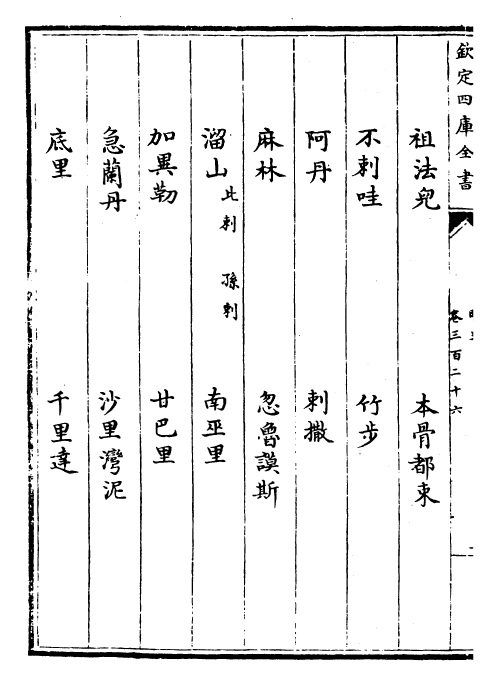 欽定四庫全書
卷三百二十六
祖法兒 木骨都東
不剌哇 竹步
阿丹 剌撒
麻林 忽魯謨斯
溜山 此剌 孫剌 南巫里
加異勒 甘巴里
急蘭丹 沙里灣泥
底里 千里達